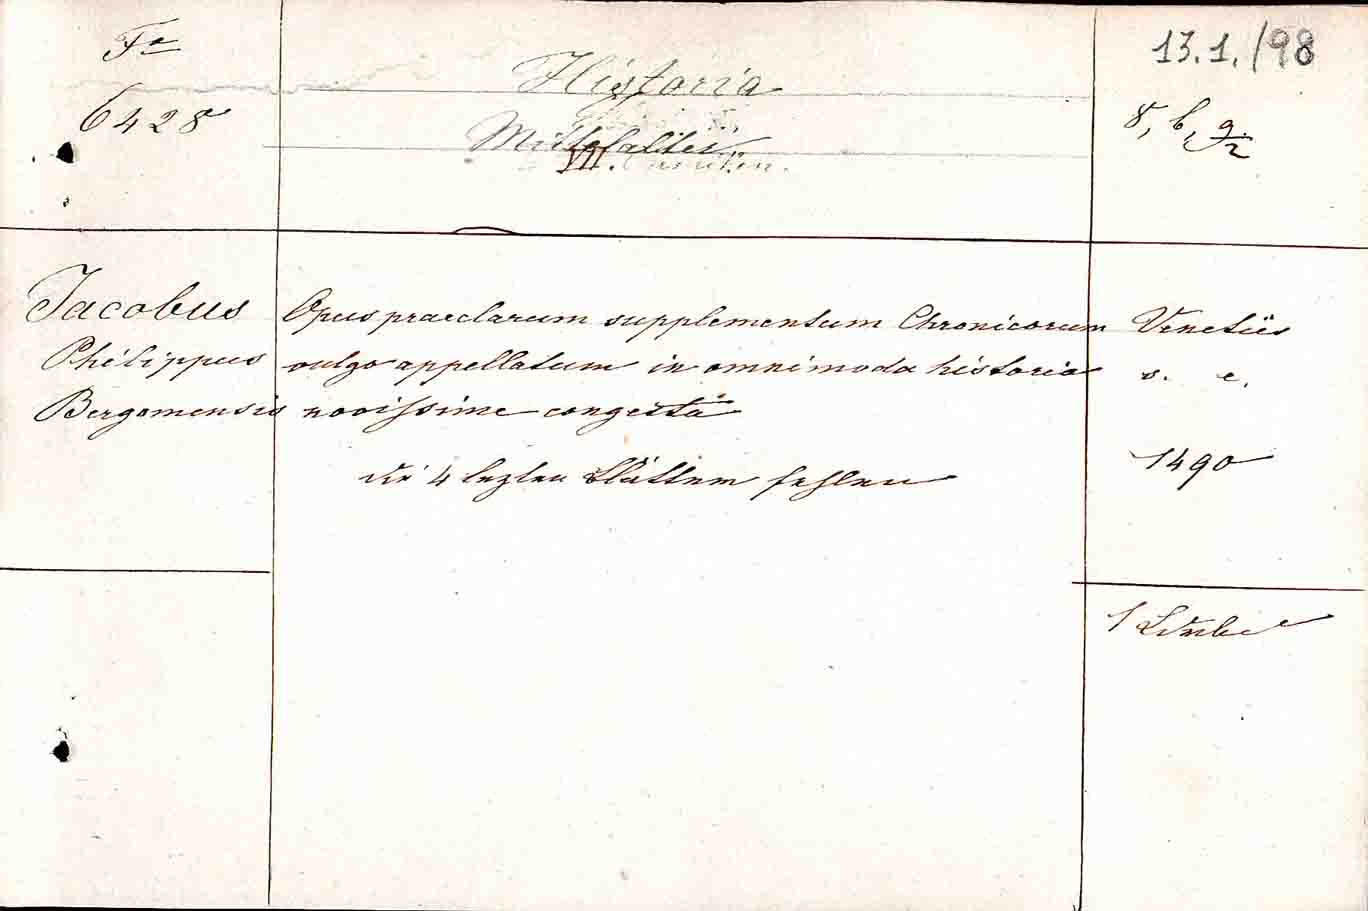 Fa
6428
Historia
Mittelalter
VII.
13.1./98
8, b, 9/2
Jacobus
Philippus
Bergomensis
Opus praeclarum supplementum Chronicorum
vulgo appellatum in omnimoda historia
novissime congestū
die 4 lezten Blättern fehlen
Venetiis
s. e.
1490
1